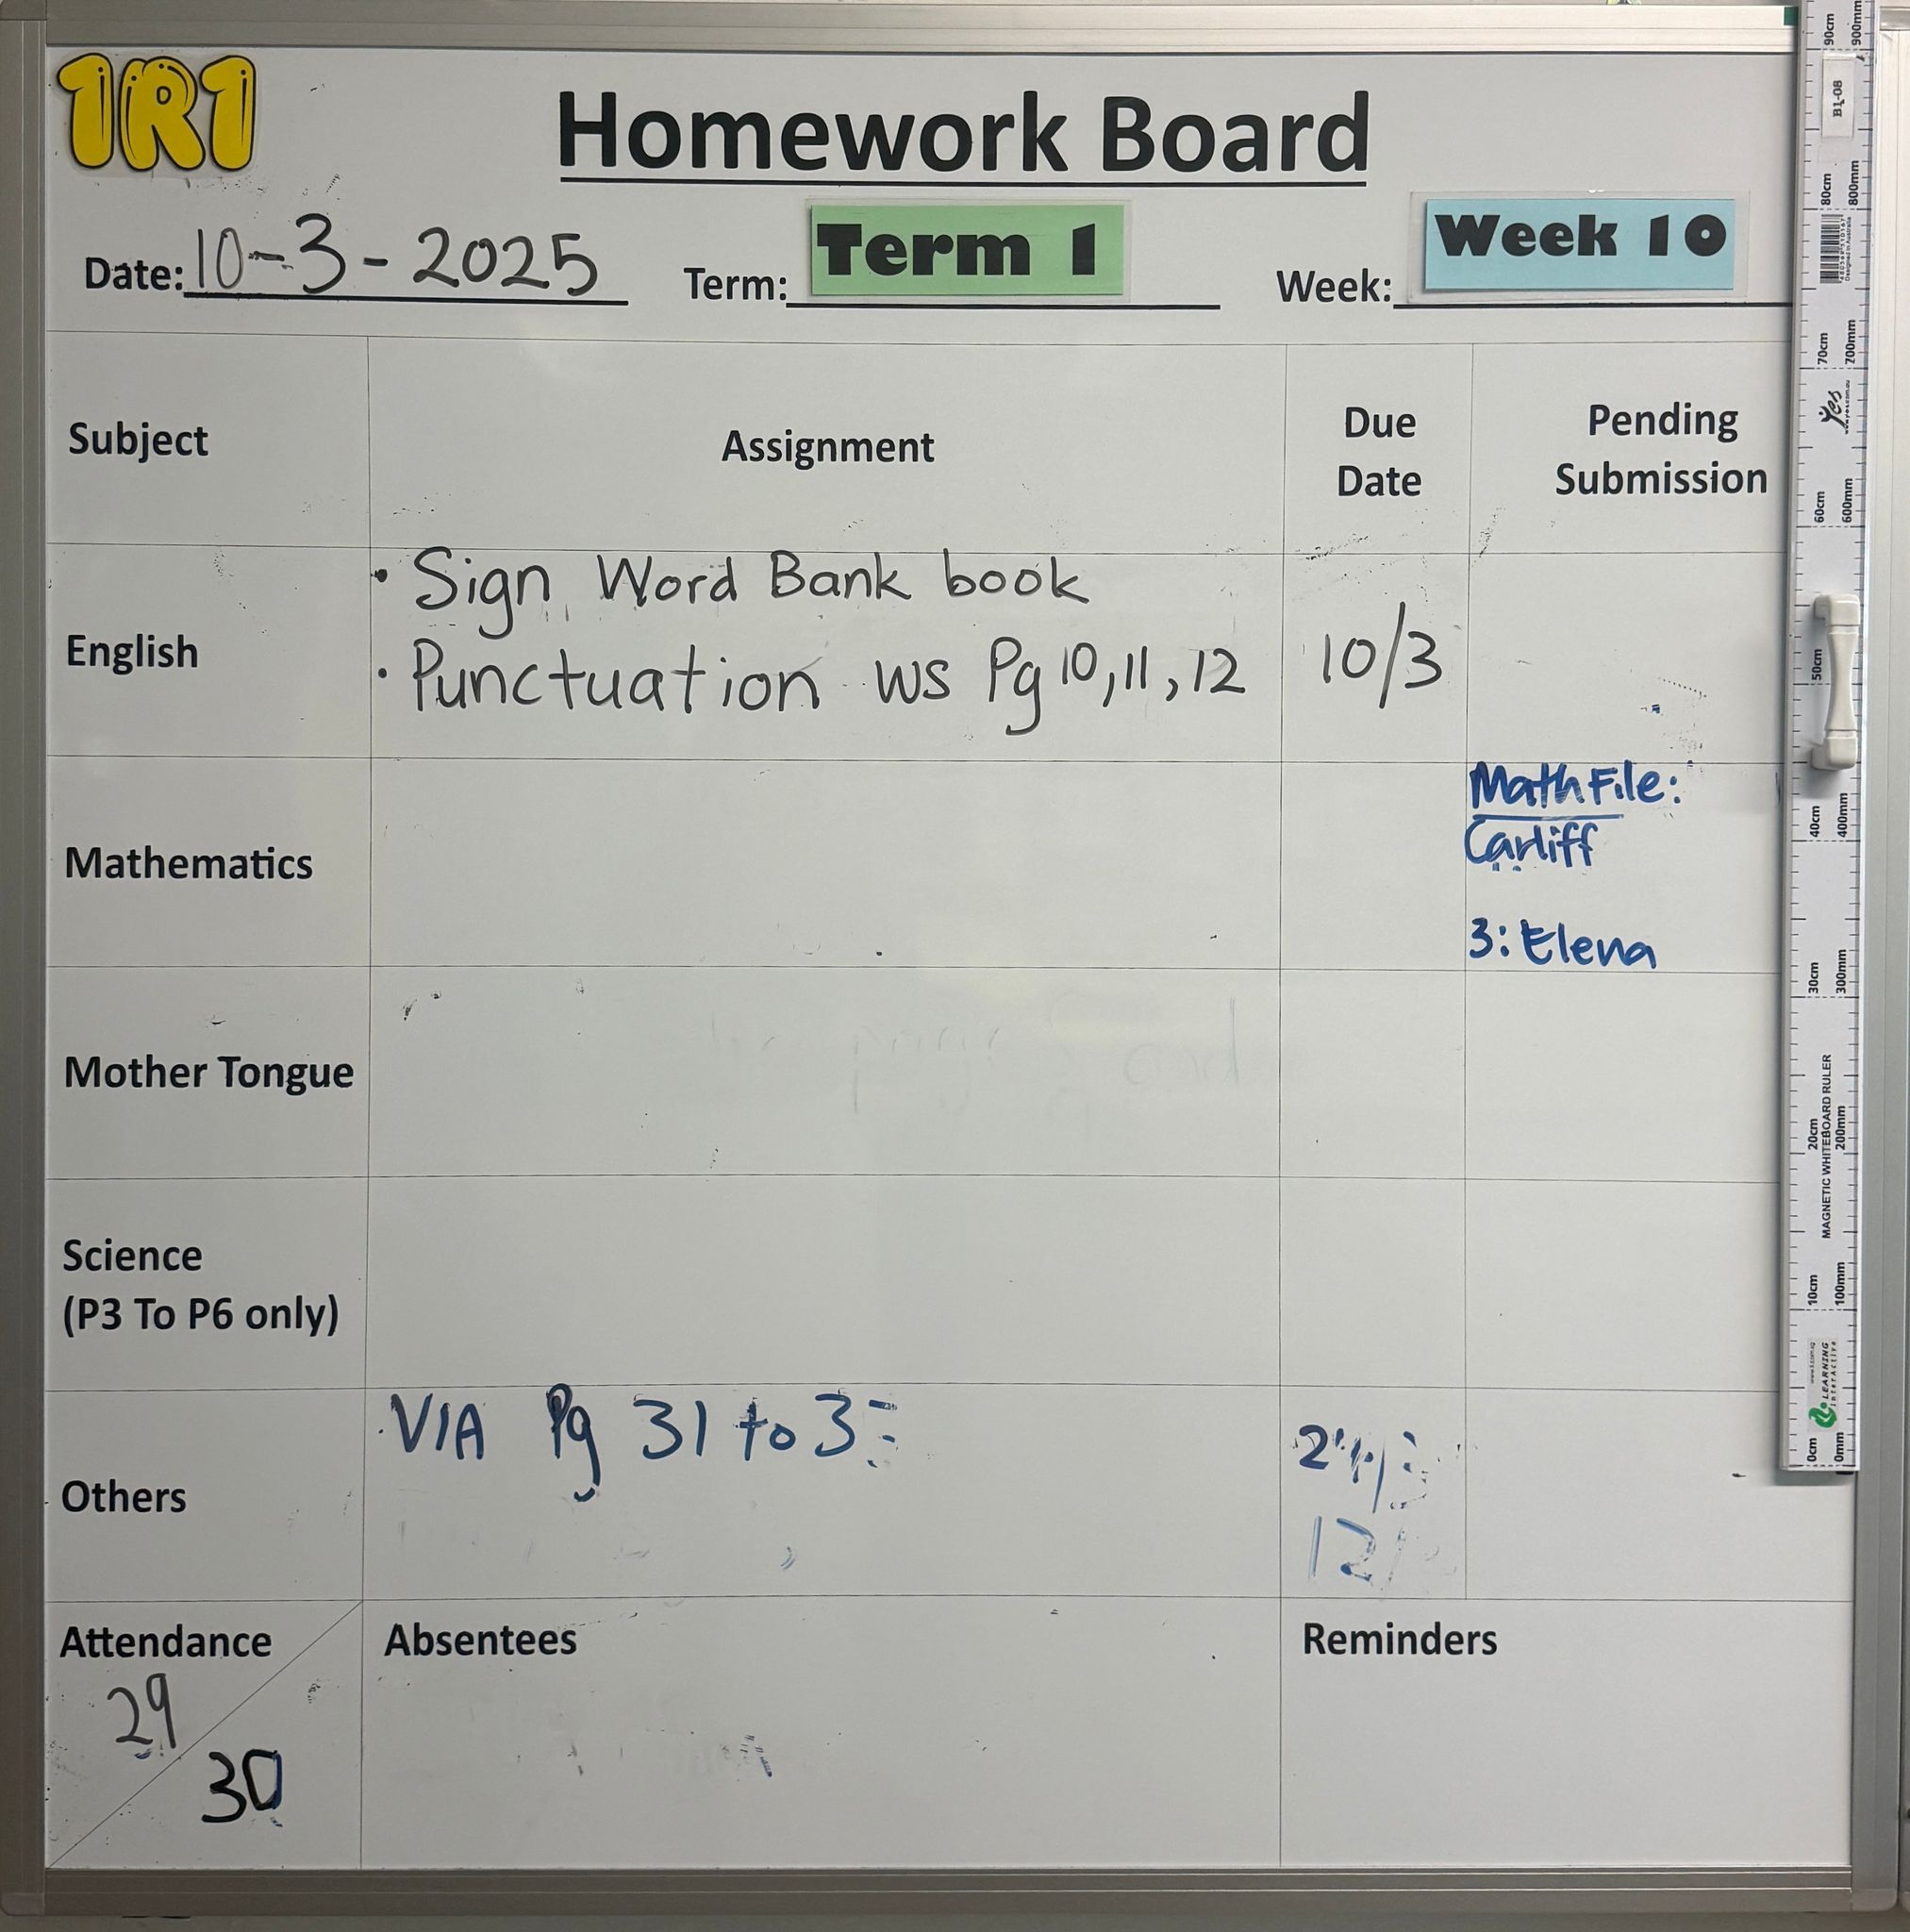 1R1
Homework Board
Date: 10-3-2025 Term: Term 1 Week: Week 10
Subject Assignment Due Date Pending Submission
English
• Sign Word Bank book
• Punctuation ws Pg 10, 11, 12
10/3
Mathematics
Math File:
Carliff
3: Elena
Mother Tongue
Science
(P3 To P6 only)
Others
VIA Pg 31 to
Attendance
29
30
Absentees
Reminders
90cm 900mm
B1-08
80cm 800mm
70cm 700mm
Yes
60cm 600mm
50cm
40cm 400mm
30cm 300mm
MAGNETIC WHITEBOARD RULER
20cm 200mm
10cm 100mm
LEARNING
interactive
0cm 0mm